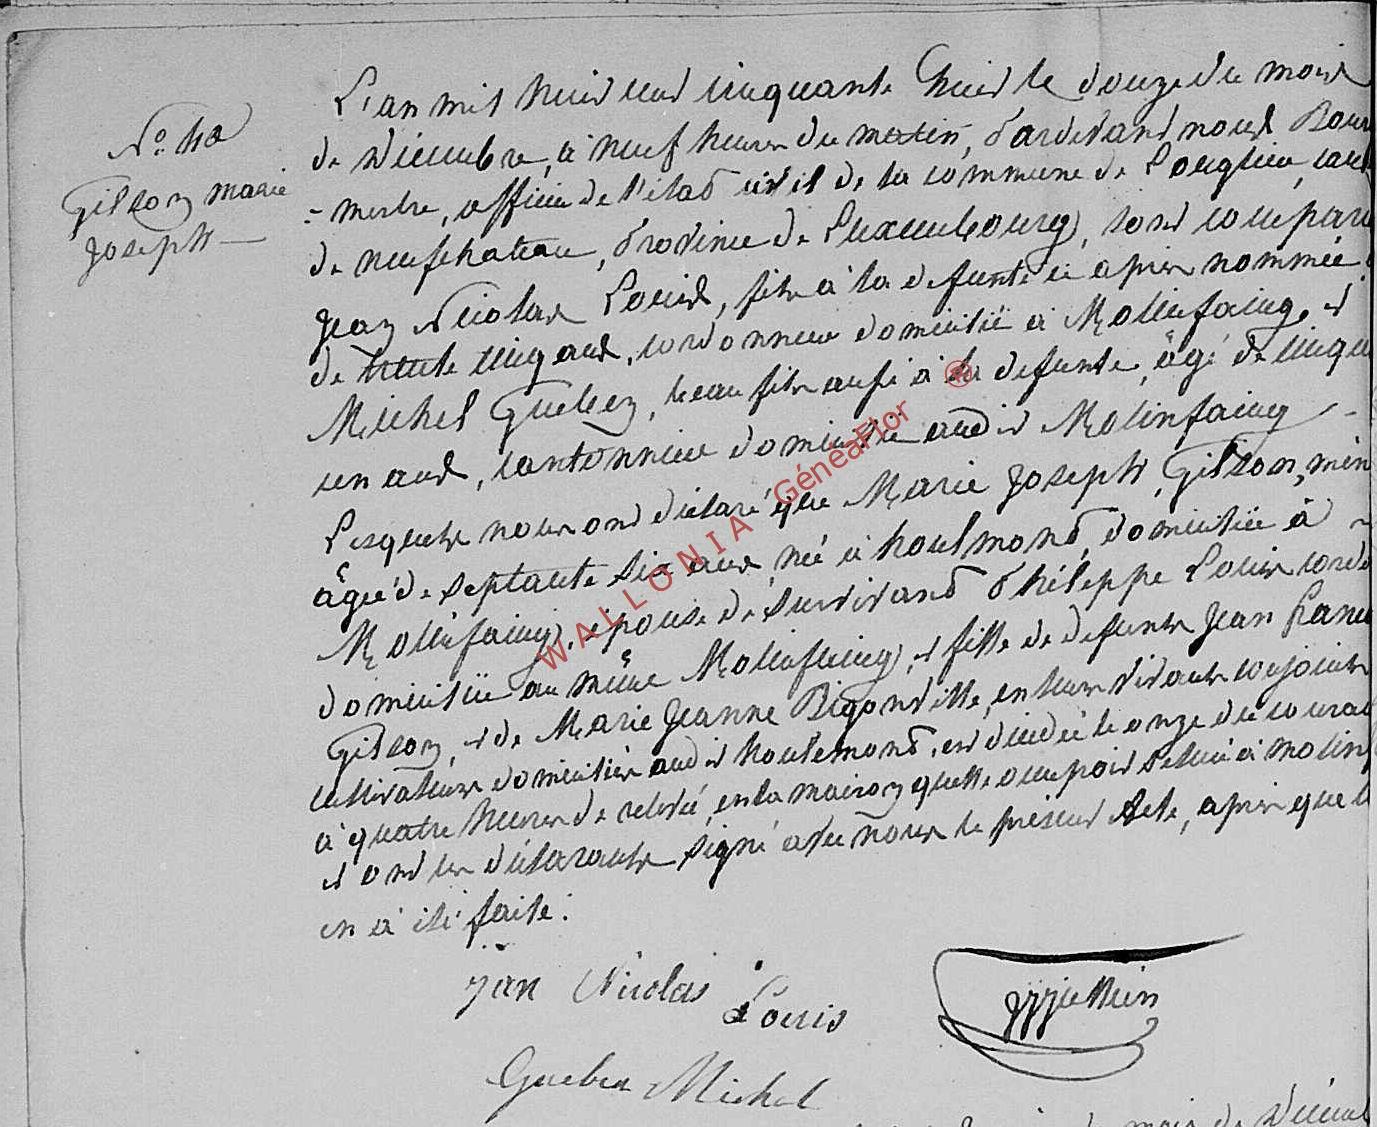 L'an mil huit cent cinquante huit le douze du mois
No. 40
de Décembre, à neuf heures du matin, Pardevant nous Bourg
Gilson marie
- mestre, officier de l'état civil de la commune de Louglier, cant
Joseph —
de neufchateau, province de Luxembourg, sont comparu
Jean Nicolas Louis, fils à la defunte ci après nommée,
de trente cinq ans, cordonnier domicilié à Molinfaing, et
Michel Gueben, beau fils aussi à la defunte, âgé de cinqu
un ans, cantonnier domicilié audit Molinfaing
Lesquels nous ont déclaré que Marie Joseph Gilson, mén
âgée de septante six ans, née à houtmont, domiciliée à
Molinfaing, épouse de survivant Philippe Louis cordo
domicilié au même Molinfaing, et fille de defunts Jean Franc
Gilson, et de Marie Jeanne Bigonville, en leur vivants conjoints
cultivateurs domiciliés audit houtemont, est décédée le onze du couran
à quatre heures de relevée, en la maison quelle occupoit située à Molinf
et ont les déclarants signé avec nous le présent Acte, après que l
en a été faite.
jan Nicolas Louis
Gueben Michel
WALLONIA GénéaFlor